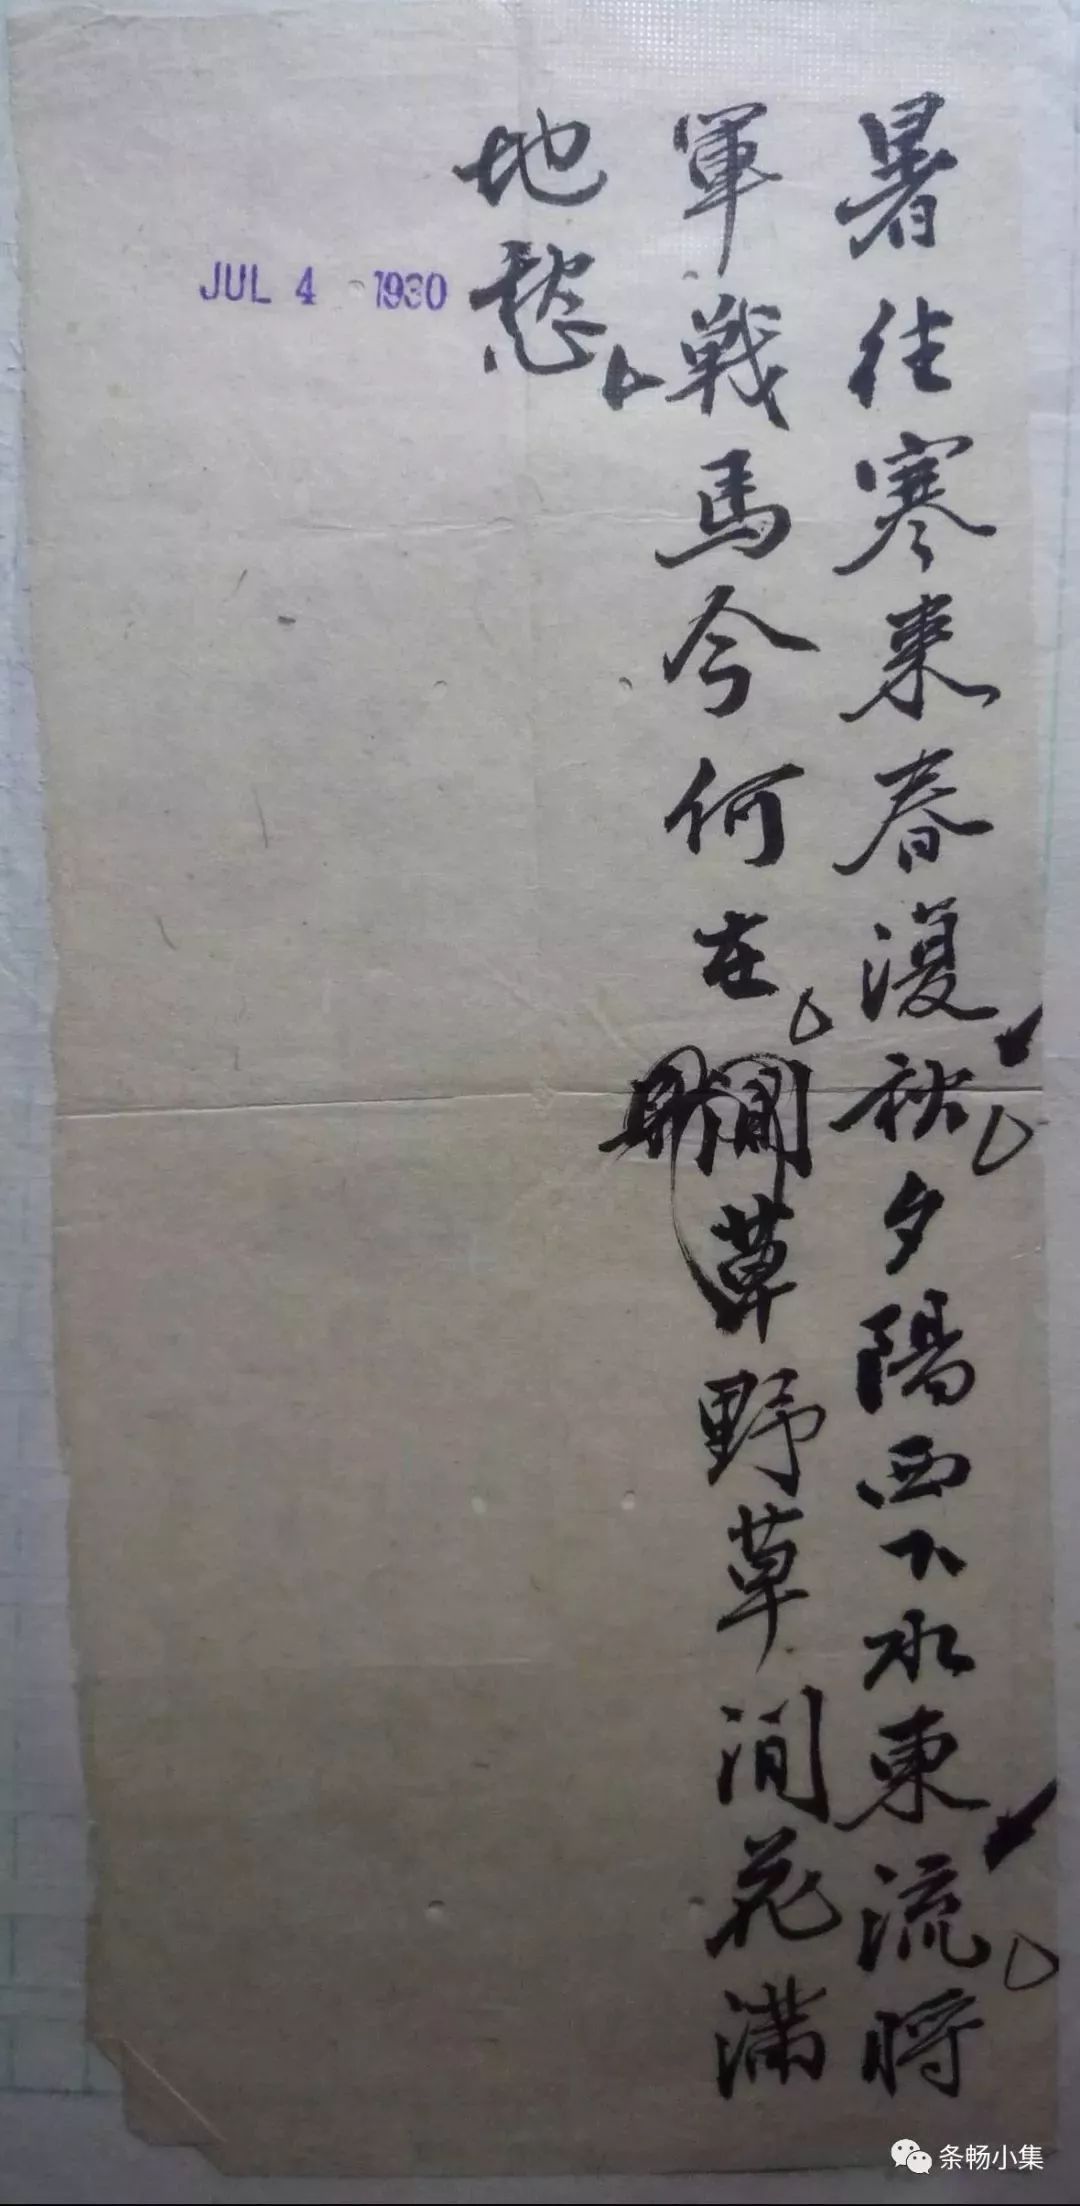 暑往寒来春復秋夕陽西下水東流将
軍戦馬今何在野草閒花满
地愁
JUL 4 1930
条畅小集